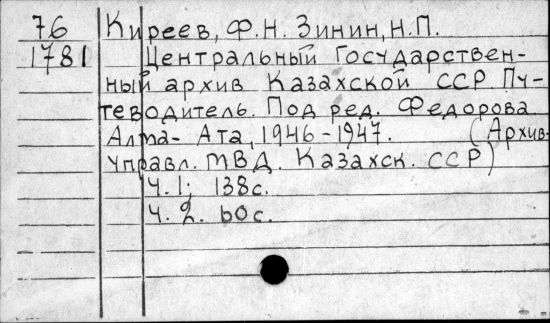 76 Киреев, Ф.Н. Зинин, Н.П.
1781 Центральный Государствен-
ный архив Казахской ССР. Пу-
теводитель. Под ред. Федорова
Алма-Ата, 1946-1947. (Архив.
Управл. МВД. Казахск. ССР)
Ч. 1; 138с.
Ч. 2. 60с.